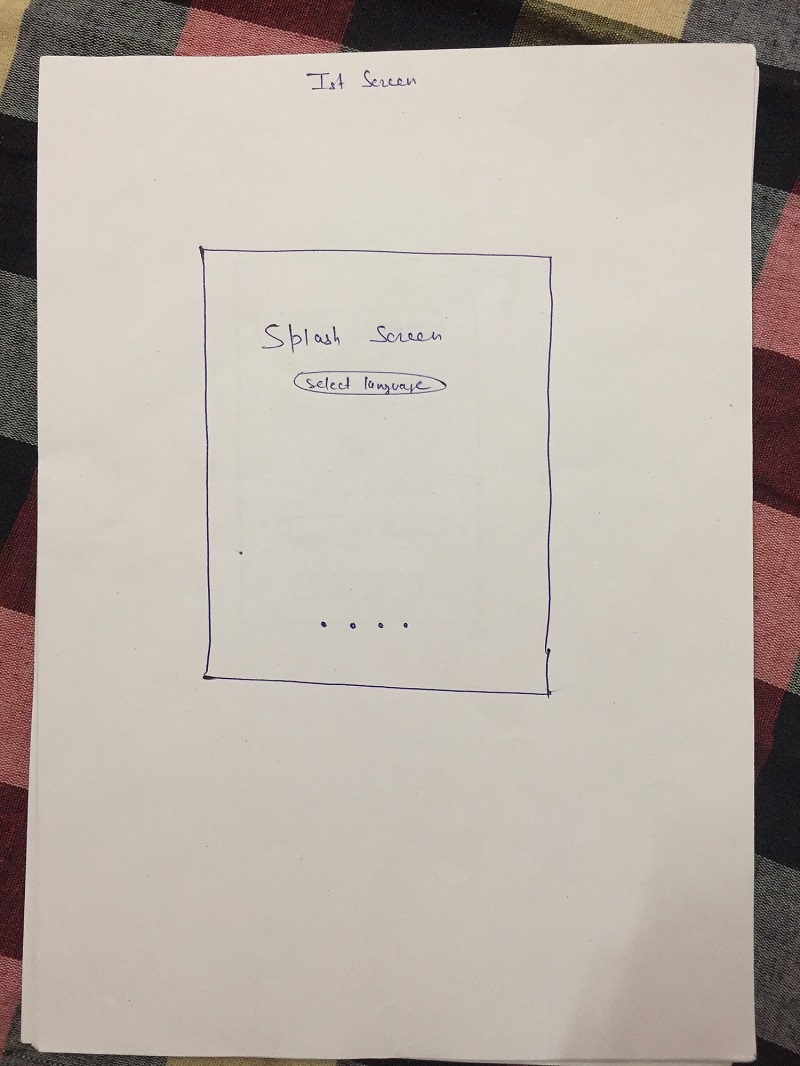 Ist Screen
Splash Screen
Select language